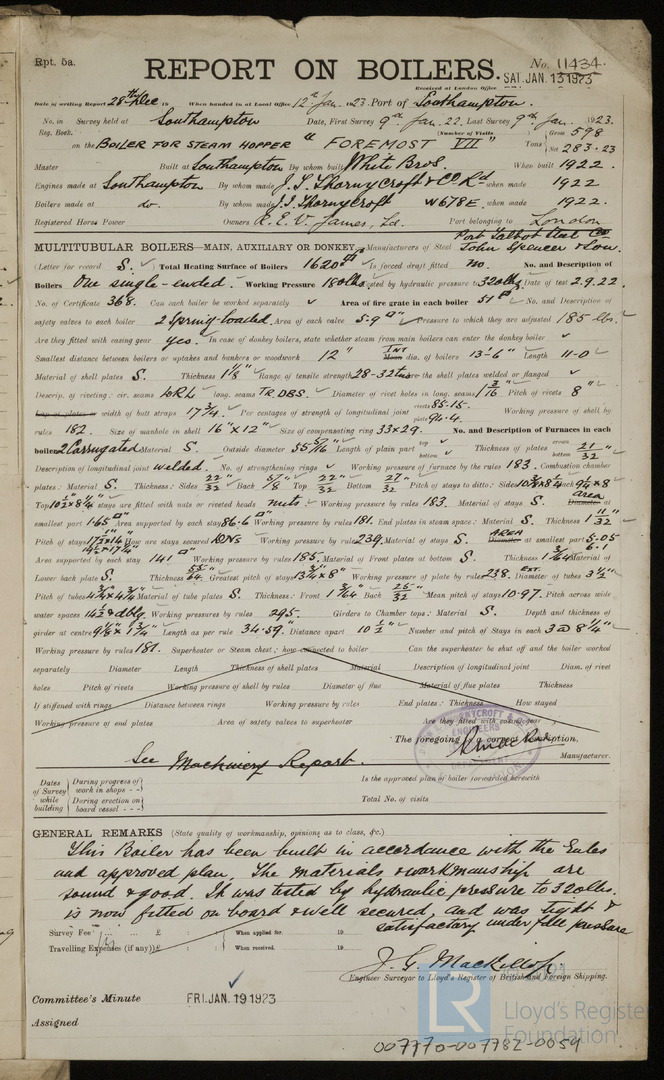 Rpt. 5a.
REPORT ON BOILERS.
No. 11434
Received at London Office
SAT. JAN. 13 1923
Date of writing Report 28th Dec 19 When handed in at Local Office 12th Jan. 1923. Port of Southampton.
No. in Survey held at Southampton Date, First Survey 9th Jan. 22. Last Survey 9th Jan. 1923.
Reg. Book. (Number of Visits) Gross 598
on the BOILER FOR STEAM HOPPER "FOREMOST VII" Tons Net 283.23
Master Built at Southampton By whom built White Bros. When built 1922.
Engines made at Southampton By whom made J. I. Thornycroft & Co Ld when made 1922
Boilers made at do. By whom made J. I. Thornycroft W678E. when made 1922.
Registered Horse Power Owners R. E. V. James, Ld. Port belonging to London
MULTITUBULAR BOILERS—MAIN, AUXILIARY OR DONKEY.—Manufacturers of Steel Port Talbot Steel Co John Spencer & Son.
(Letter for record S.) Total Heating Surface of Boilers 1620 Is forced draft fitted no. No. and Description of
Boilers One single-ended. Working Pressure 180 lbs Tested by hydraulic pressure to 320 lbs Date of test 2.9.22.
No. of Certificate 368. Can each boiler be worked separately Area of fire grate in each boiler 51 No. and Description of
safety valves to each boiler 2 Spring-loaded. Area of each valve 5.9 Pressure to which they are adjusted 185 lbs.
Are they fitted with easing gear yes. In case of donkey boilers, state whether steam from main boilers can enter the donkey boiler
Smallest distance between boilers or uptakes and bunkers or woodwork 12" INT Mean dia. of boilers 13-6" Length 11-0
Material of shell plates S. Thickness 1 1/8" Range of tensile strength 28-32 tons Are the shell plates welded or flanged
Descrip. of riveting: cir. seams long. seams TR.DBS. Diameter of rivet holes in long. seams 1 3/16 Pitch of rivets 8"
Lap of plates or width of butt straps 17 3/4. Per centages of strength of longitudinal joint rivets 85.15. plate 94.4. Working pressure of shell by
rules 182. Size of manhole in shell 16" x 12" Size of compensating ring 33 x 29. No. and Description of Furnaces in each
boiler 2 Corrugated Material S. Outside diameter Length of plain part top bottom Thickness of plates crown bottom 21/32
Description of longitudinal joint welded. No. of strengthening rings Working pressure of furnace by the rules 183. Combustion chamber
plates: Material S. Thickness: Sides 22/32 Back 5/8 Top 22/32 Bottom 27/32 Pitch of stays to ditto: Sides
Top Stays are fitted with nuts or riveted heads nuts. Working pressure by rules 183. Material of stays S. area Diameter at
smallest part 1.65 Area supported by each stay 86.6 Working pressure by rules 181. End plates in steam space: Material S. Thickness 1 11/32
Pitch of stays How are stays secured Working pressure by rules 239. Material of stays S. AREA Diameter at smallest part 5.05
6.1
Area supported by each stay 141 Working pressure by rules 185. Material of Front plates at bottom S. Thickness 1 3/64 Material of
Lower back plate S. Thickness 55/64. Greatest pitch of stays 13 3/4 x 8" Working pressure of plate by rules 238. EXT. Diameter of tubes 3 1/2"
Pitch of tubes 4 3/4 x 4 3/4 Material of tube plates S. Thickness: Front 1 3/64 Back 25/32 Mean pitch of stays 10.97. Pitch across wide
water spaces Working pressures by rules 295. Girders to Chamber tops: Material S. Depth and thickness of
girder at centre 9 1/8" x 1 3/4 Length as per rule 34.59" Distance apart 10 1/2" Number and pitch of Stays in each 3 @ 8 1/4"
Working pressure by rules 181. Superheater or Steam chest; how connected to boiler Can the superheater be shut off and the boiler worked
separately Diameter Length Thickness of shell plates Material Description of longitudinal joint Diam. of rivet
holes Pitch of rivets Working pressure of shell by rules Diameter of flue Material of flue plates Thickness
If stiffened with rings Distance between rings Working pressure by rules End plates: Thickness How stayed
Working pressure of end plates Area of safety valves to superheater Are they fitted with easing gear
The foregoing is a correct description,
See Machinery Report. Manufacturer.
Dates of Survey while building During progress of work in shops - - Is the approved plan of boiler forwarded herewith
During erection on board vessel - - - Total No. of visits
GENERAL REMARKS (State quality of workmanship, opinions as to class, &c.)
This Boiler has been built in accordance with the Rules
and approved plan. The materials & workmanship are
sound & good. It was tested by hydraulic pressure to 320 lbs.
is now fitted on board & well secured, and was tight &
satisfactory under full pressure
Survey Fee ... ... £ : : When applied for. 19
Travelling Expenses (if any) £ : : When received. 19
J. G. Mackillop.
Engineer Surveyor to Lloyd's Register of British and Foreign Shipping.
Committee's Minute FRI. JAN. 19 1923
Assigned
LR Lloyd's Register Foundation
007770-007782-0054